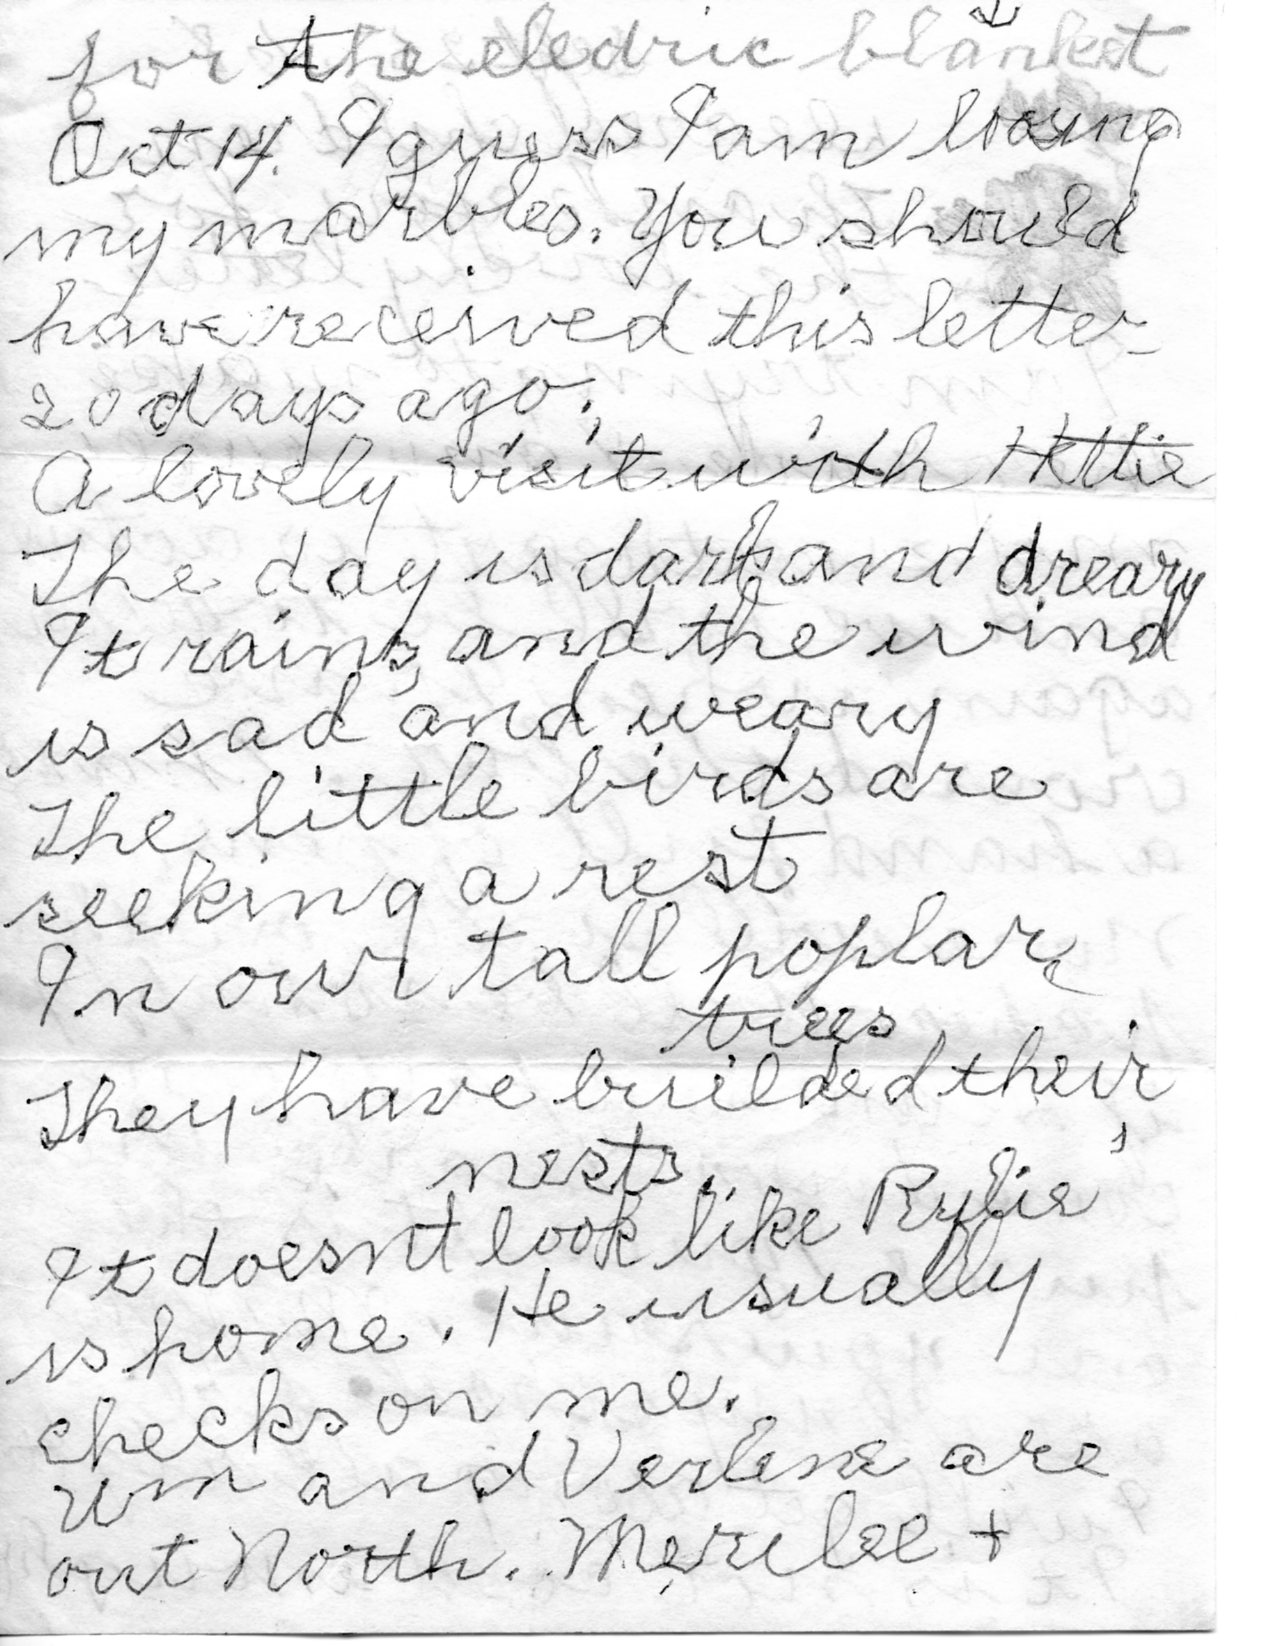 for the eledric blanket
Oct 14. I guess I am loosing
my marbles. You should
have received this letter
20 days ago.
A lovely visit with Hettie
The day is dark and dreary
It rains, and the wind
is sad and weary
The little birds are
seeking a rest
In our tall poplar
trees
They have builded their
nests.
It doesn't look like Rylie
is home. He usually
checks on me.
Wm and Verlene are
out North. Merilee +